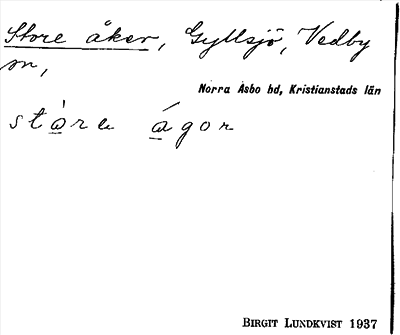 Store åker, Gyllsjö, Vedby
sn,
Norra Åsbo hd, Kristianstads län
stàra ágor
BIRGIT LUNDKVIST 1937